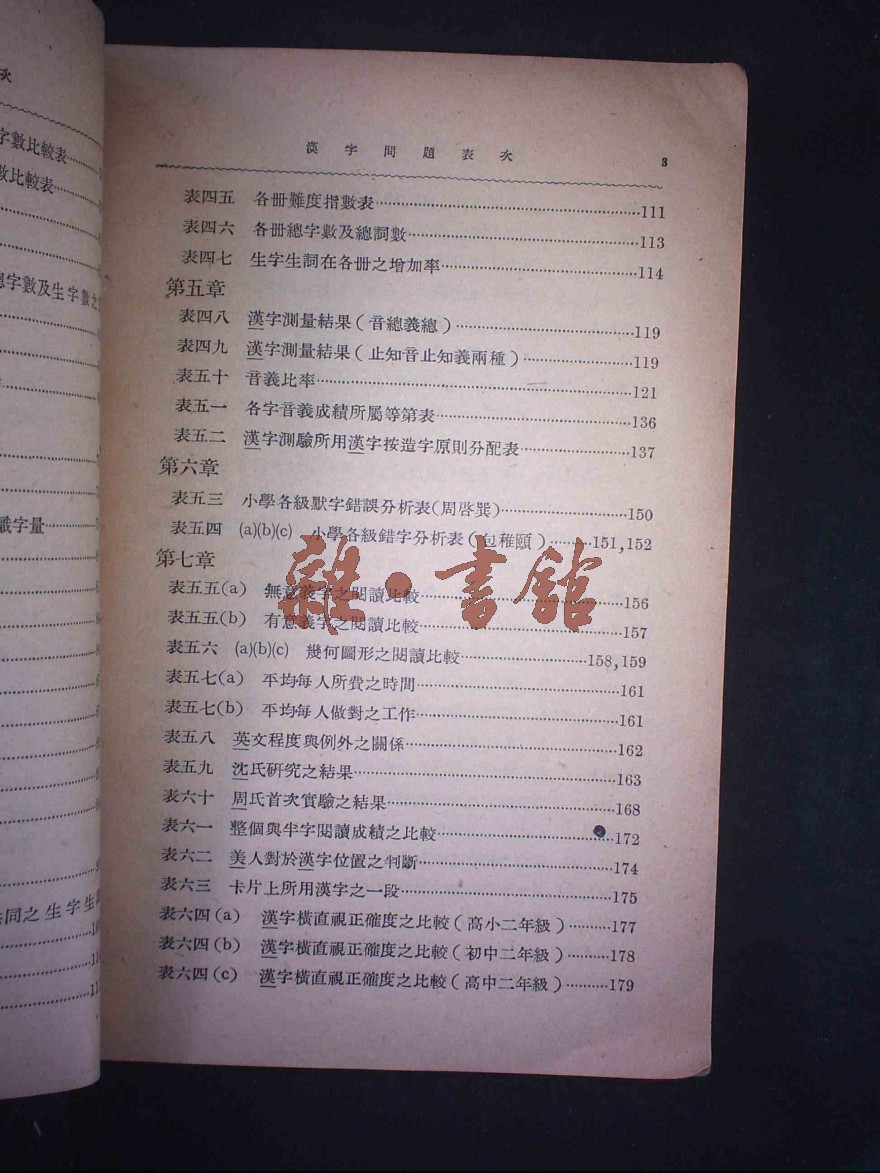 次
字數比較表
數比較表
總字數及生字數之
識字量
共同之生字生
漢字問題表次 3
表四五 各冊難度指數表……111
表四六 各冊總字數及總詞數……113
表四七 生字生詞在各冊之增加率……114
第五章
表四八 漢字測量結果(音總義總)……119
表四九 漢字測量結果(止知音止知義兩種)……119
表五十 音義比率……121
表五一 各字音義成績所屬等第表……136
表五二 漢字測驗所用漢字按造字原則分配表……137
第六章
表五三 小學各級默字錯誤分析表(周啓巽)……150
表五四 (a)(b)(c) 小學各級錯字分析表(包稚頤)……151,152
第七章
表五五(a) 無意義字之閱讀比較……156
表五五(b) 有意義字之閱讀比較……157
表五六 (a)(b)(c) 幾何圖形之閱讀比較……158,159
表五七(a) 平均每人所費之時間……161
表五七(b) 平均每人做對之工作……161
表五八 英文程度與例外之關係……162
表五九 沈氏研究之結果……163
表六十 周氏首次實驗之結果……168
表六一 整個與半字閱讀成績之比較……172
表六二 美人對於漢字位置之判斷……174
表六三 卡片上所用漢字之一段……175
表六四(a) 漢字橫直視正確度之比較(高小二年級)……177
表六四(b) 漢字橫直視正確度之比較(初中二年級)……178
表六四(c) 漢字橫直視正確度之比較(高中二年級)……179
雜·書館